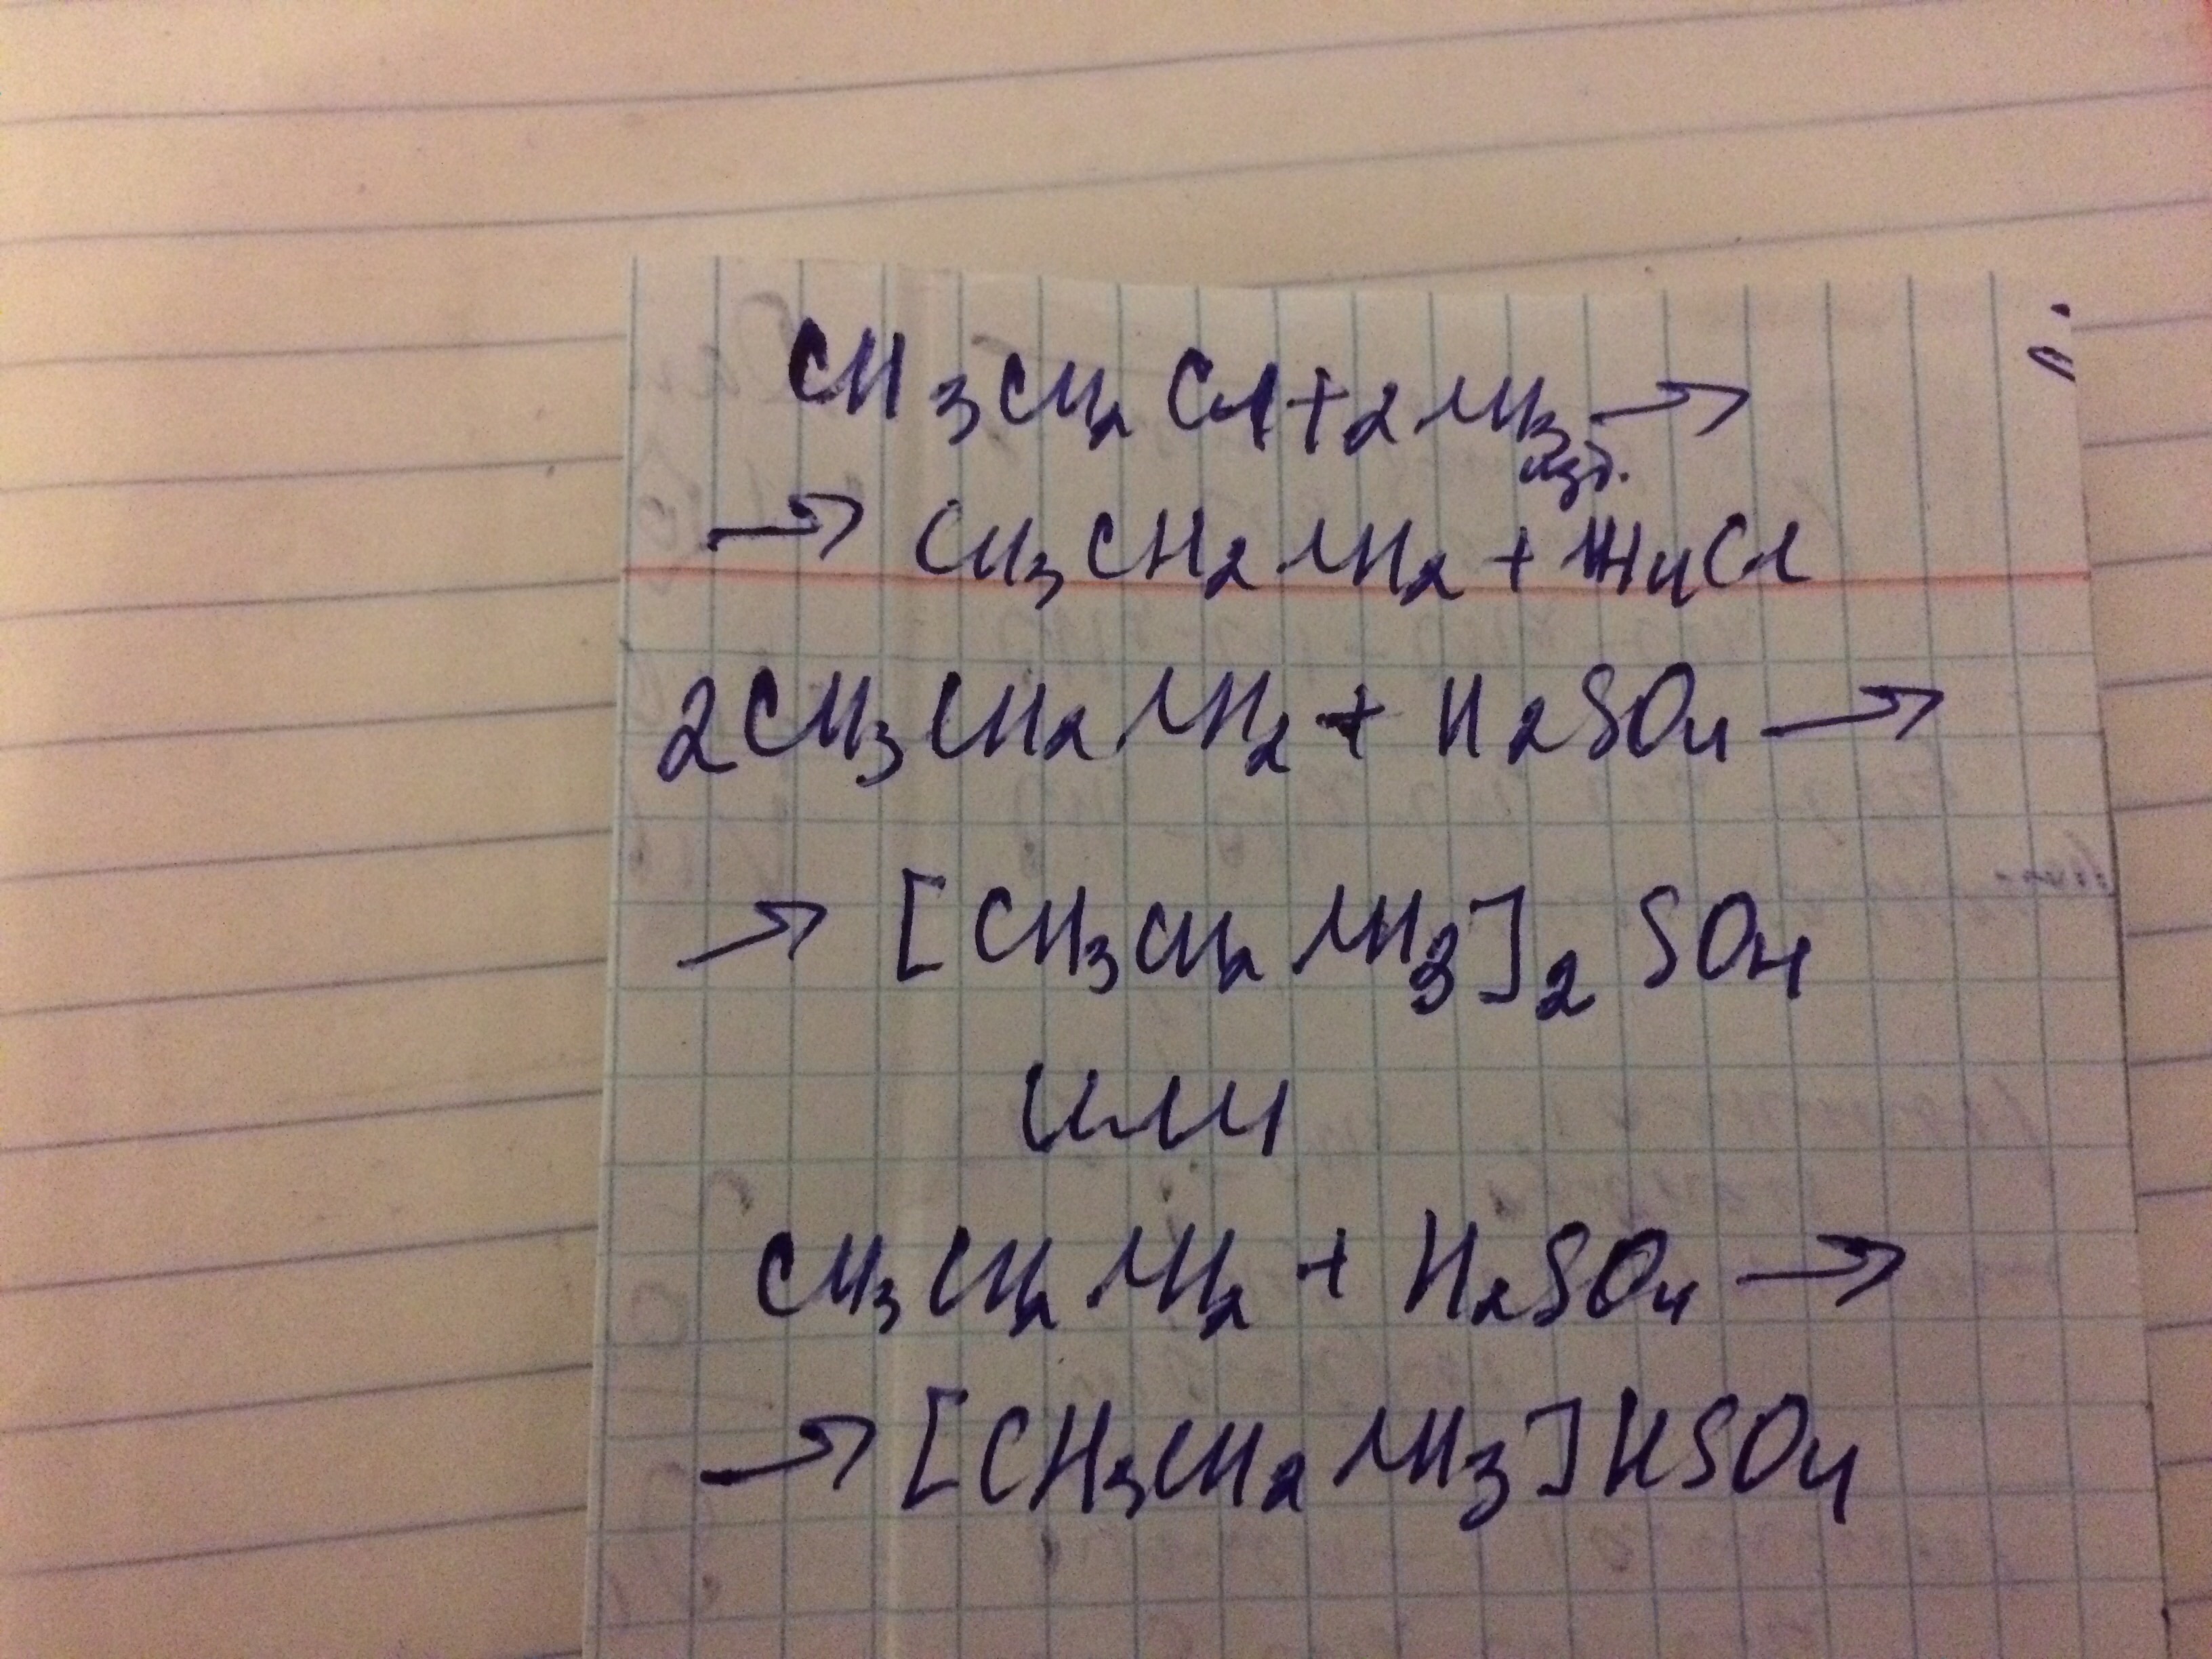 CH3CH2Cl + 2NH3 →
изб.
→ CH3CH2NH2 + NH4Cl
2CH3CH2NH2 + H2SO4 →
→ [CH3CH2NH3]2SO4
или
CH3CH2NH2 + H2SO4 →
→ [CH3CH2NH3]HSO4